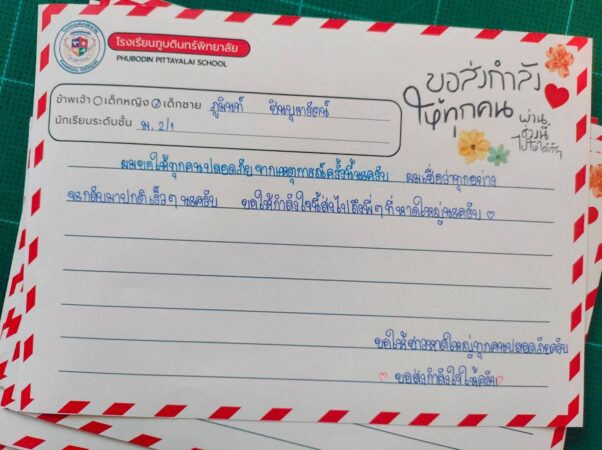 โรงเรียนภูบดินทร์พิทยาลัย
PHUBODIN PITTAYALAI SCHOOL
ขอส่งกำลัง
ให้ทุกคน
ผ่าน
ช่วงนี้
ไปให้ได้
ข้าพเจ้า เด็กหญิง เด็กชาย ภูมินท์
นักเรียนระดับชั้น ม.2/1
ผมขอให้ทุกคนปลอดภัย จากเหตุการณ์ครั้งนี้นะครับ ผมเชื่อว่าทุกอย่าง
จะกลับมาปกติเร็วๆ นะครับ ขอให้กำลังใจนี้ส่งไปถึงพี่ๆ ที่หาดใหญ่นะครับ ♡
ขอให้ชาวหาดใหญ่ทุกคนปลอดภัยครับ
♡ ขอส่งกำลังใจให้ครับ ♡